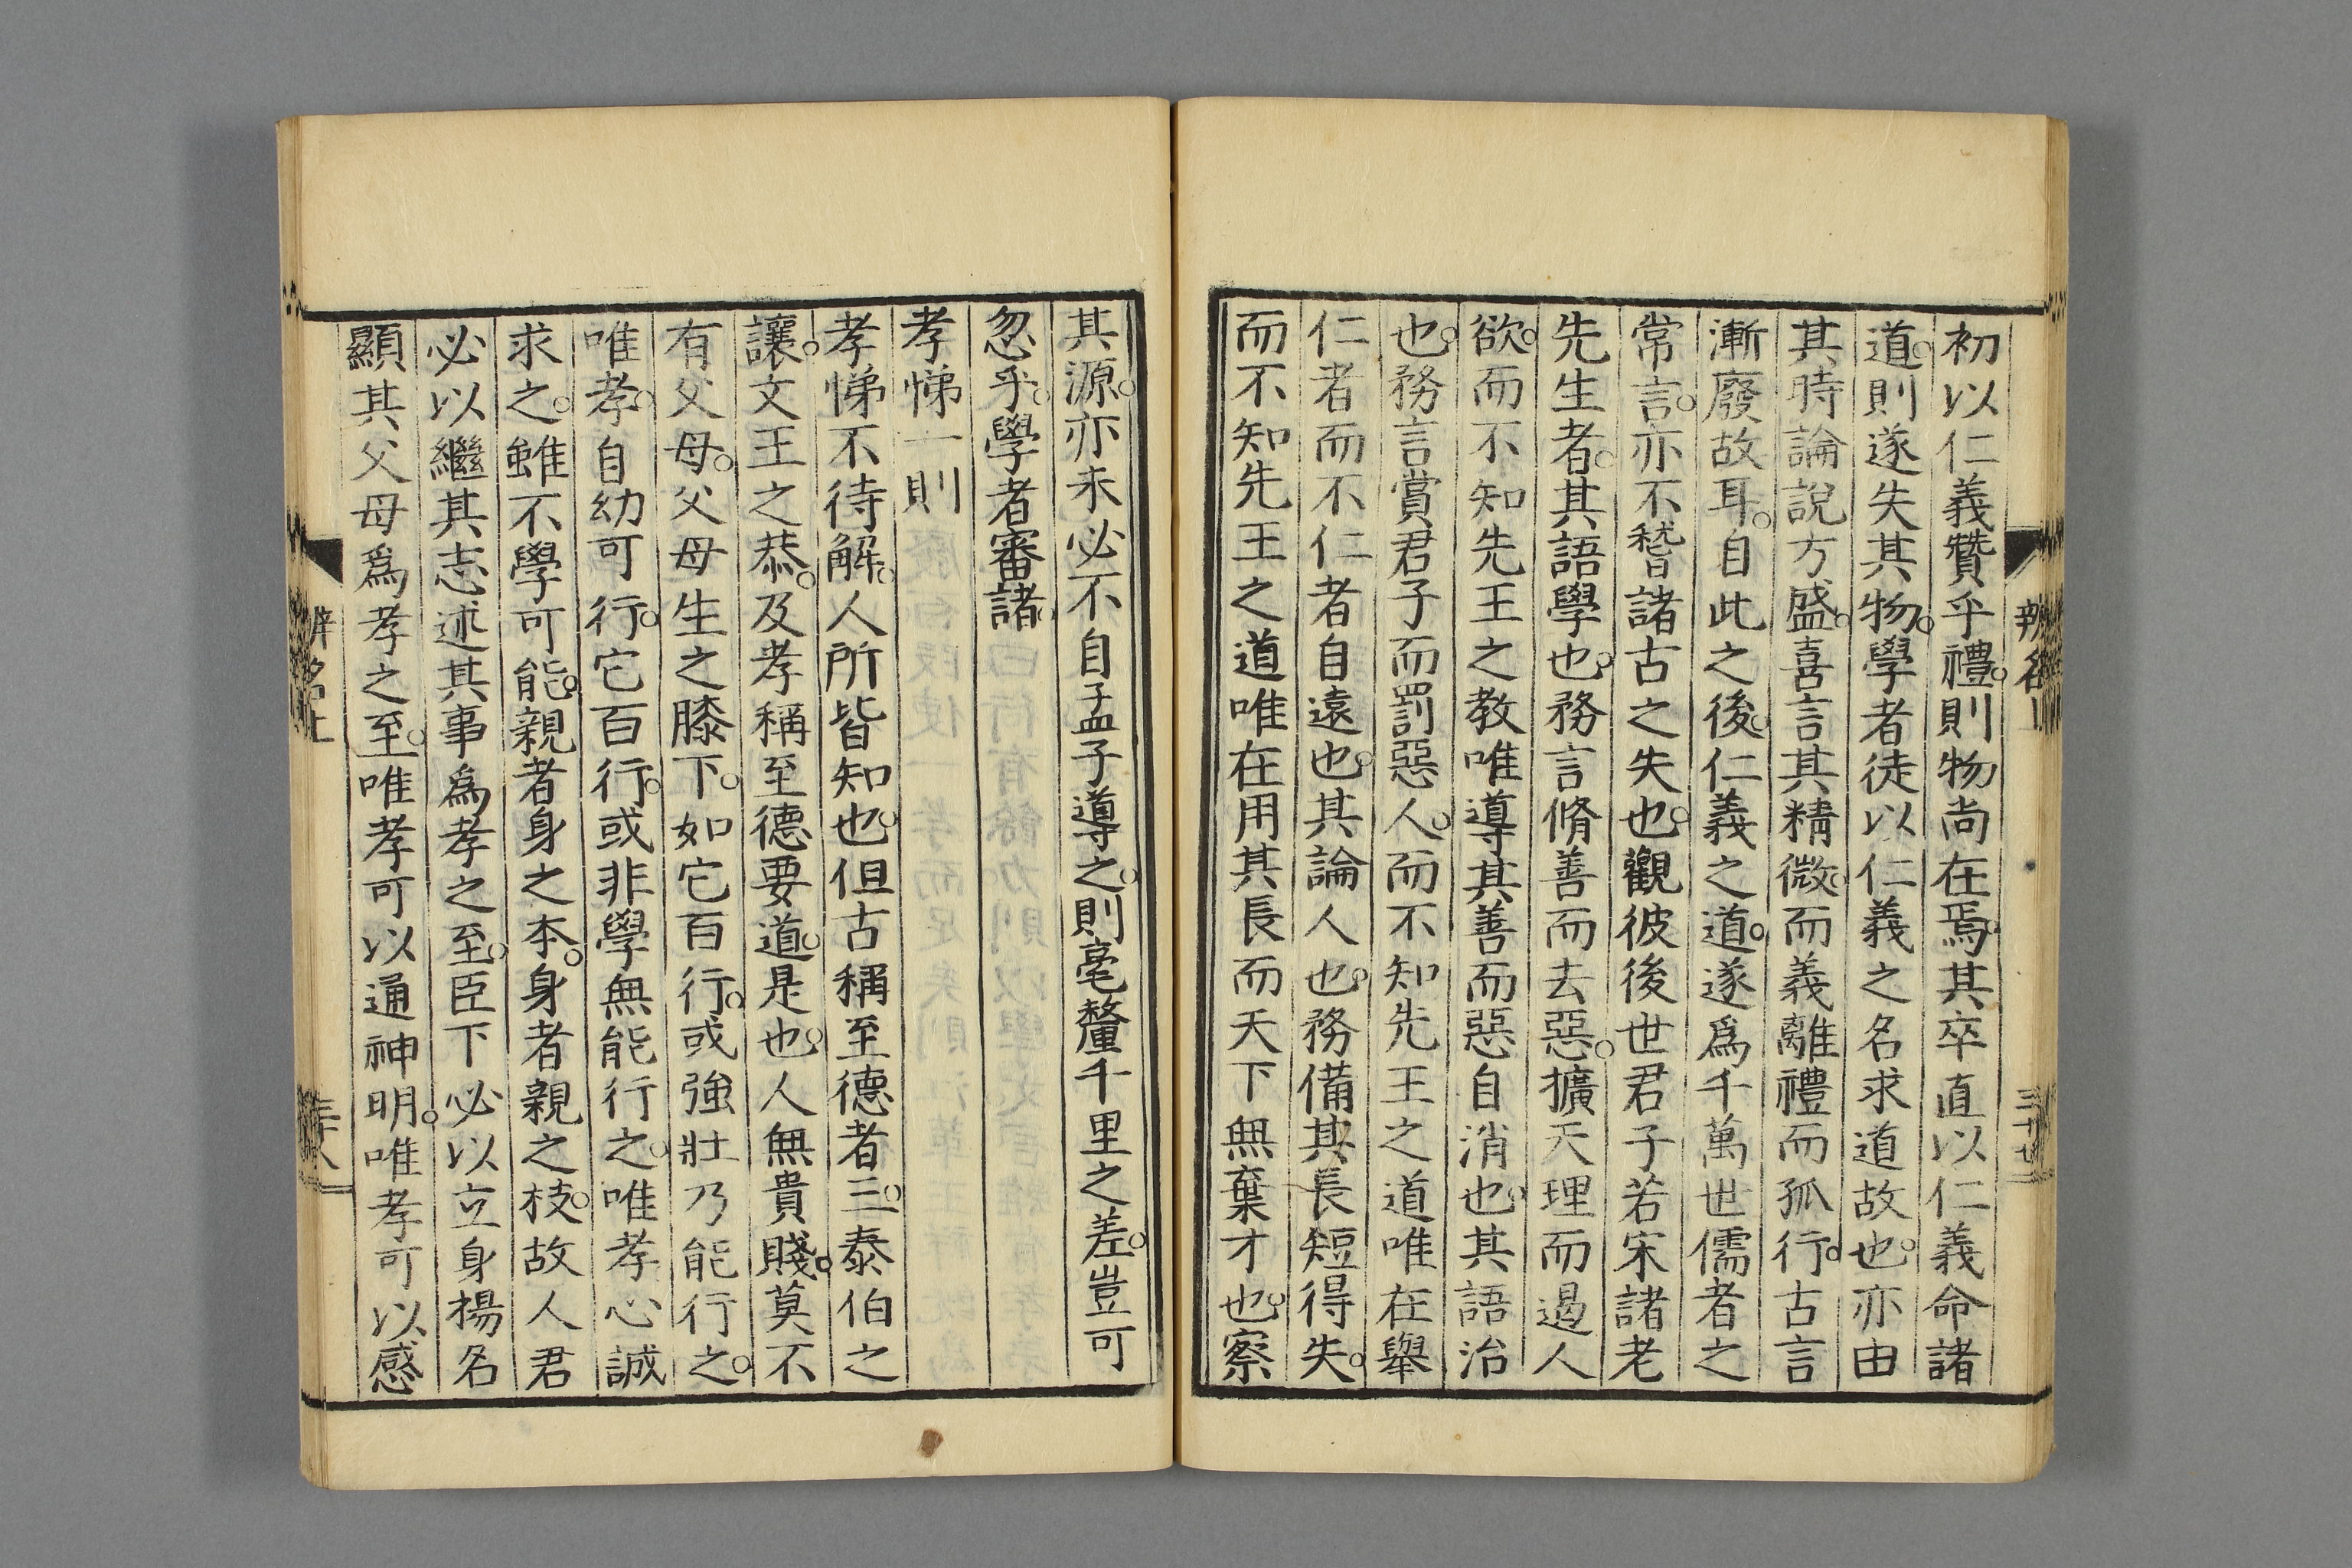 初以仁義贊乎禮。則物尚在焉。其卒直以仁義命諸
道。則遂失其物。學者徒以仁義之名求道故也。亦由
其時論說方盛。喜言其精微。而義離禮而孤行。古言
漸廢故耳。自此之後。仁義之道。遂爲千萬世儒者之
常言。亦不稽諸古之失也。觀彼後世君子若宋諸老
先生者。其語學也。務言脩善而去惡。擴天理而遏人
欲。而不知先王之教唯導其善而惡自消也。其語治
也。務言賞君子而罰惡人。而不知先王之道唯在舉
仁者而不仁者自遠也。其論人也。務備其長短得失。
而不知先王之道唯在用其長而天下無棄才也。察
其源。亦未必不自孟子導之。則毫釐千里之差。豈可
忽乎。學者審諸。
孝悌一則
孝悌不待解。人所皆知也。但古稱至德者三。泰伯之
讓。文王之恭。及孝稱至德要道。是也。人無貴賤。莫不
有父母。父母生之膝下。如它百行。或強壯乃能行之。
唯孝。自幼可行。它百行。或非學無能行之。唯孝心誠
求之。雖不學可能。親者身之本。身者親之枝。故人君
必以繼其志述其事爲孝之至。臣下必以立身揚名
顯其父母爲孝之至。唯孝可以通神明。唯孝可以感
辨名上
三十八